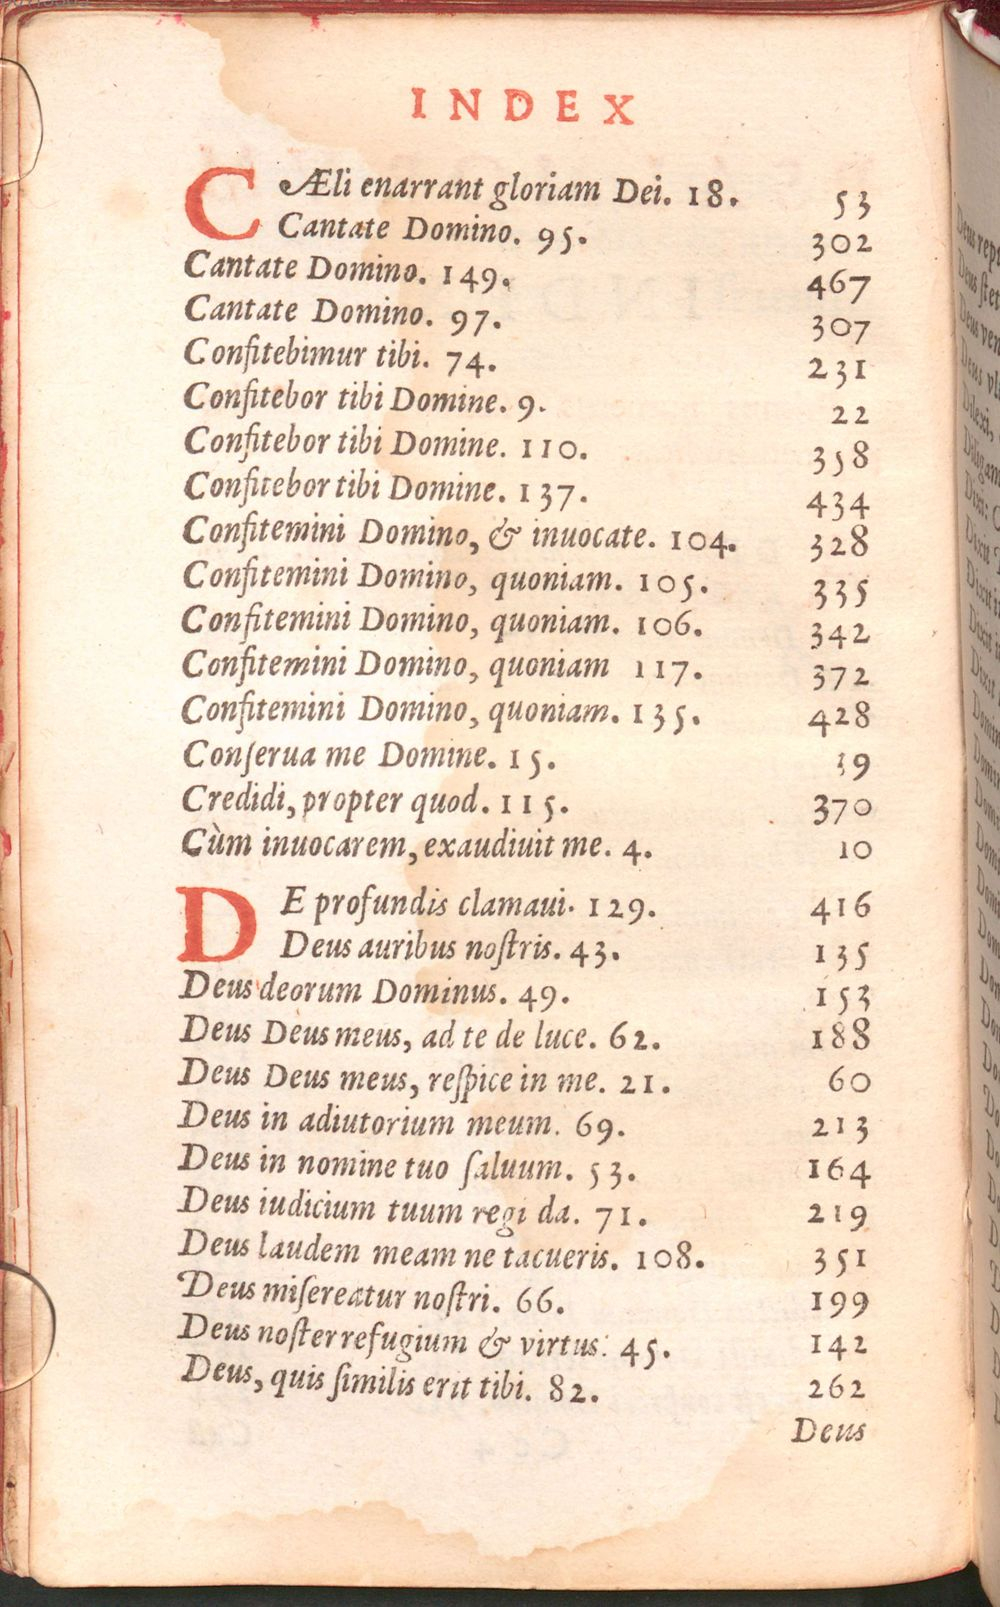 INDEX
CÆli enarrant gloriam Dei. 18. 53
Cantate Domino. 95. 302
Cantate Domino. 149. 467
Cantate Domino. 97. 307
Confitebimur tibi. 74. 231
Confitebor tibi Domine. 9. 22
Confitebor tibi Domine. 110. 358
Confitebor tibi Domine. 137. 434
Confitemini Domino, & inuocate. 104. 328
Confitemini Domino, quoniam. 105. 335
Confitemini Domino, quoniam. 106. 342
Confitemini Domino, quoniam 117. 372
Confitemini Domino, quoniam. 135. 428
Conſerua me Domine. 15. 39
Credidi, propter quod. 115. 370
Cùm inuocarem, exaudiuit me. 4. 10
DE profundis clamaui. 129. 416
Deus auribus noſtris. 43. 135
Deus deorum Dominus. 49. 153
Deus Deus meus, ad te de luce. 62. 188
Deus Deus meus, reſpice in me. 21. 60
Deus in adiutorium meum. 69. 213
Deus in nomine tuo ſaluum. 53. 164
Deus iudicium tuum regi da. 71. 219
Deus laudem meam ne tacueris. 108. 351
Deus miſereatur noſtri. 66. 199
Deus noſter refugium & virtus. 45. 142
Deus, quis ſimilis erit tibi. 82. 262
Deus